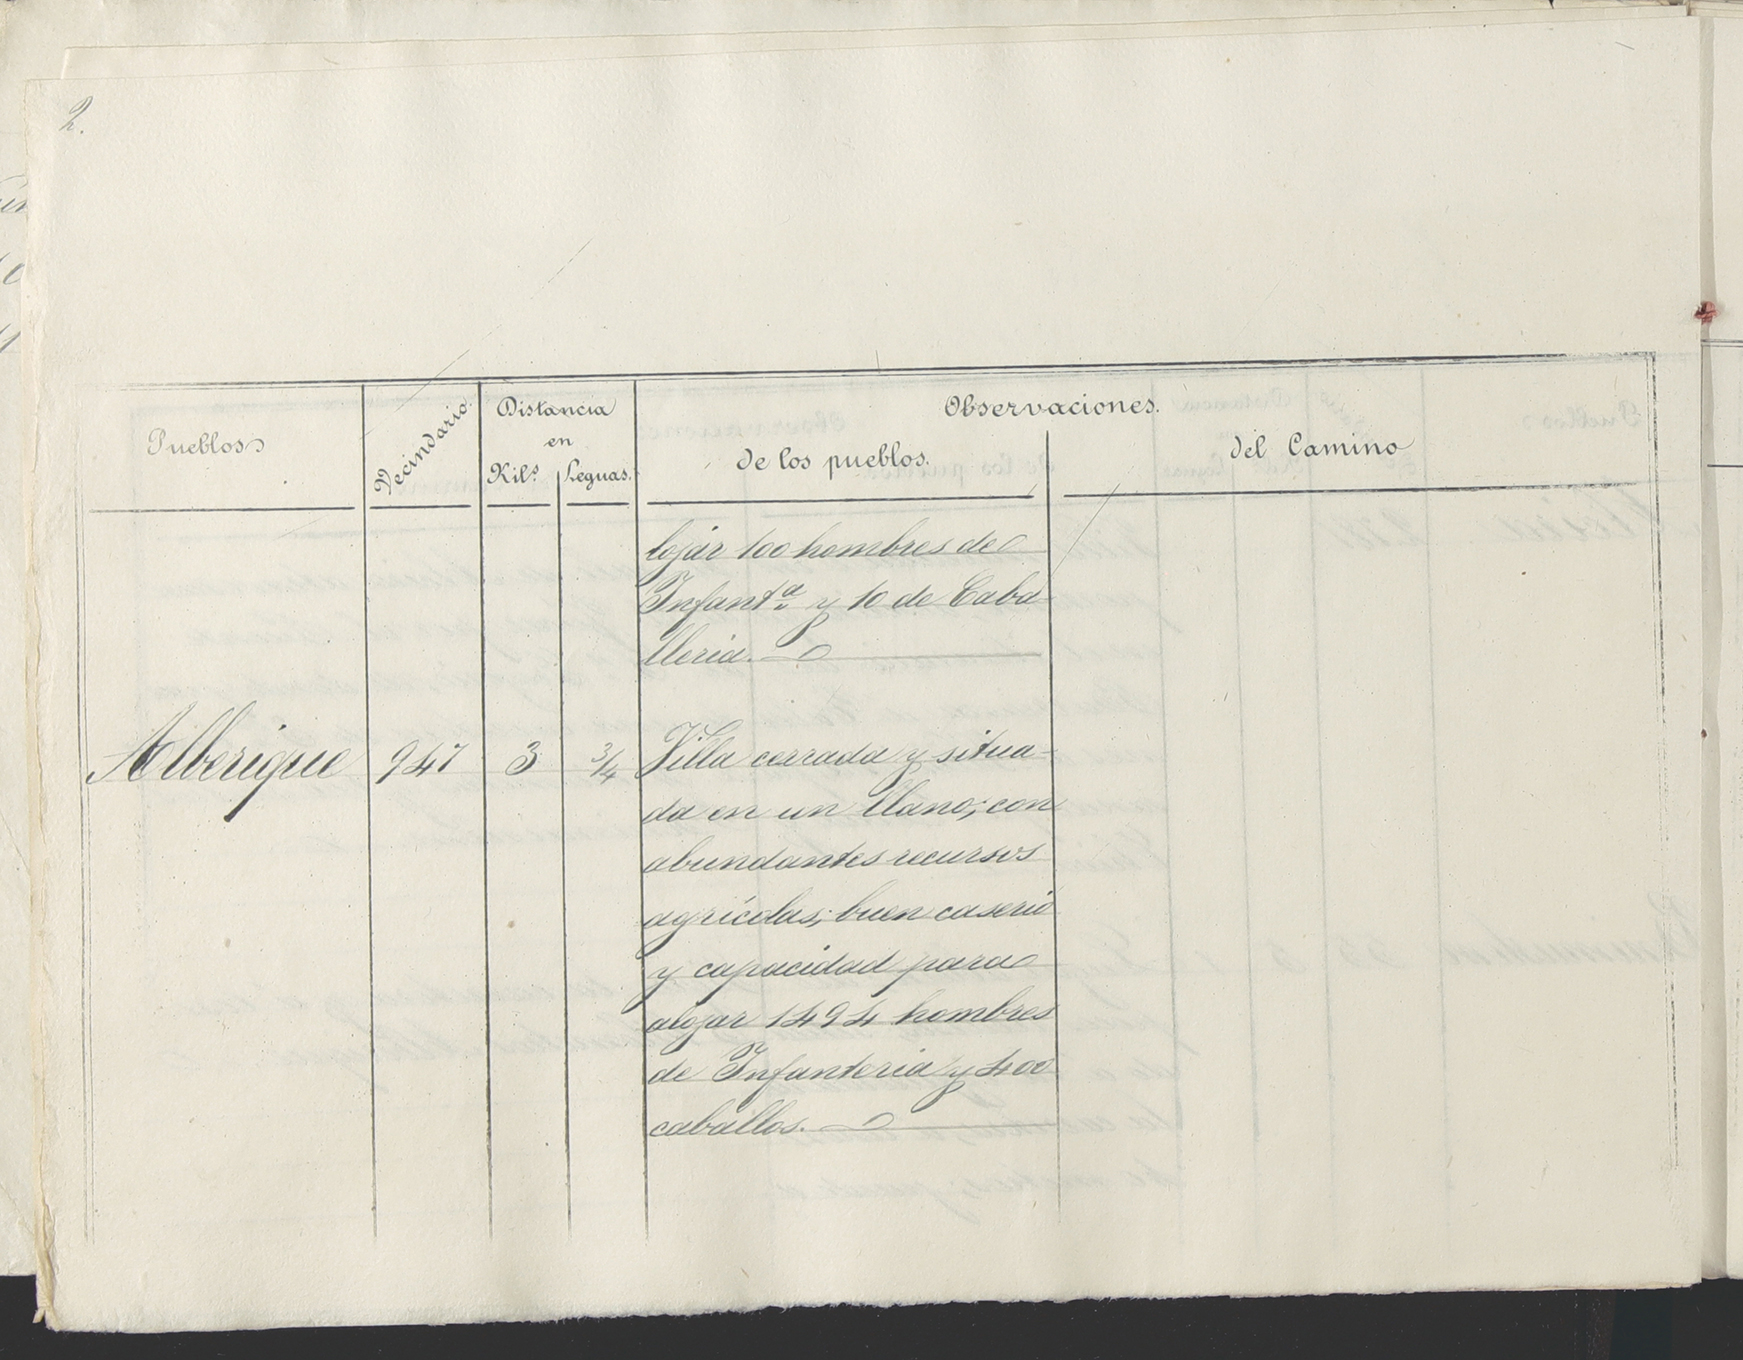 2.
Pueblos
Vecindario.
Distancia
en
Kil.s
Leguas.
Observaciones.
de los pueblos.
del Camino
lojar 100 hombres de
Infant.a y 10 de Caba-
lleria.
Alberique 947 3 3/4 Villa cerrada y situa-
da en un llano; con
abundantes recursos
agrícolas; buen caserio
y capacidad para
alojar 1494 hombres
de Infanteria y 400
caballos.